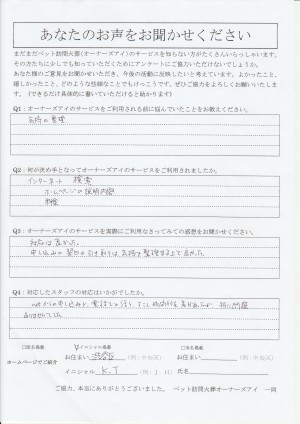 あなたのお声をお聞かせください
まだまだペット訪問火葬(オーナーズアイ)のサービスを知らない方がたくさんいらっしゃいます。
その方たちに少しでも知っていただくためにアンケートにご協力いただけないでしょうか。
あなた様のご意見をお聞かせいただき、今後の活動に反映したいと考えています。よかったこと、
嬉しかったこと、どのような些細なことでもけっこうです。ぜひご協力をよろしくお願いいたしま
す。(できるだけ具体的に書いていただけると助かります)
Q1:オーナーズアイのサービスをご利用される前に悩んでいたことをお教えください。
気持の整理
Q2:何が決め手となってオーナーズアイのサービスをご利用されましたか。
インターネット 検索
ホームページの説明内容
料金
Q3:オーナーズアイのサービスを実際にご利用なさってみての感想をお聞かせください。
対応は良かった。
申し込みの翌日の引き取りは、気持を整理する上で良かった。
Q4:対応したスタッフの対応はいかがでしたか。
netからの申し込みと、電話での
すこし
ありませんでした
□匿名掲載 ☑イニシャル掲載 □実名掲載
ホームページでご紹介 お住まい 渋谷区 (例:中央区) お住まい (例:中央区)
イニシャル K.T (例:J.H) 氏名
ご協力、本当にありがとうございました。 ペット訪問火葬オーナーズアイ 一同